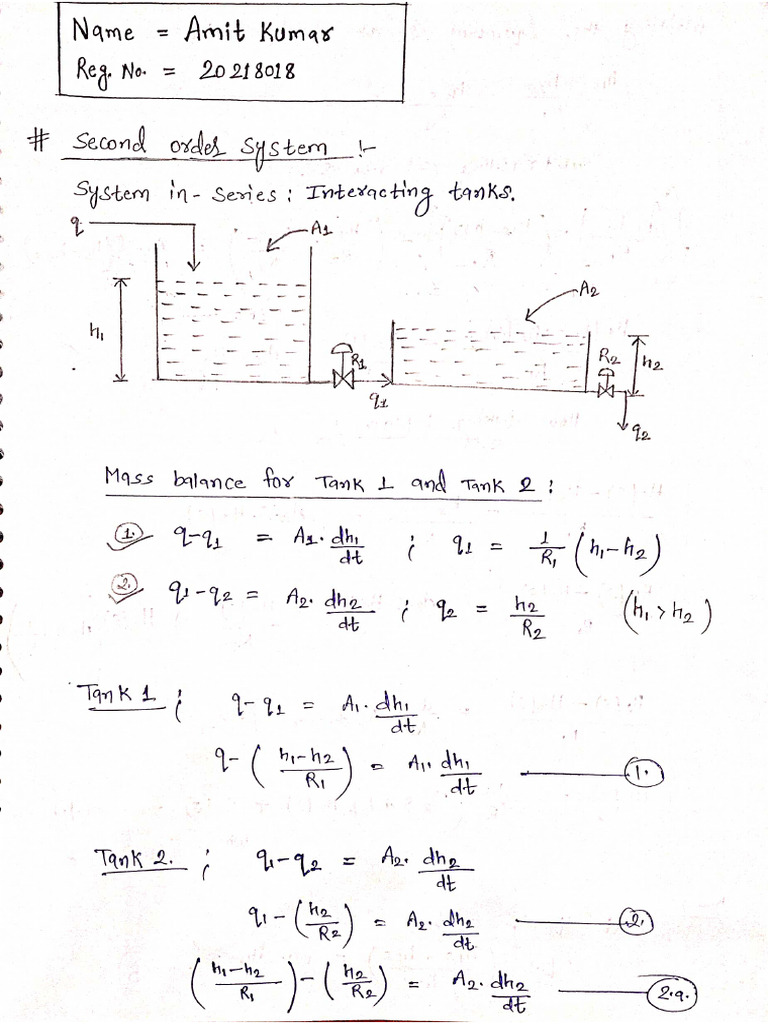 Name = Amit Kumar
Reg. No. = 20218018
# Second order System :-
System in-series : Interacting tanks.
q
A1
A2
h1
R1
R2
h2
q1
q2
Mass balance for Tank 1 and Tank 2 :
1. q-q1 = A1. dh1/dt ; q1 = 1/R1 (h1-h2)
2. q1-q2 = A2. dh2/dt ; q2 = h2/R2 (h1>h2)
Tank 1 ; q-q1 = A1. dh1/dt
q- (h1-h2/R1) = A1. dh1/dt 1.
Tank 2. ; q1-q2 = A2. dh2/dt
q1-(h2/R2) = A2. dh2/dt 2.
(h1-h2/R1)-(h2/R2) = A2. dh2/dt 2.a.